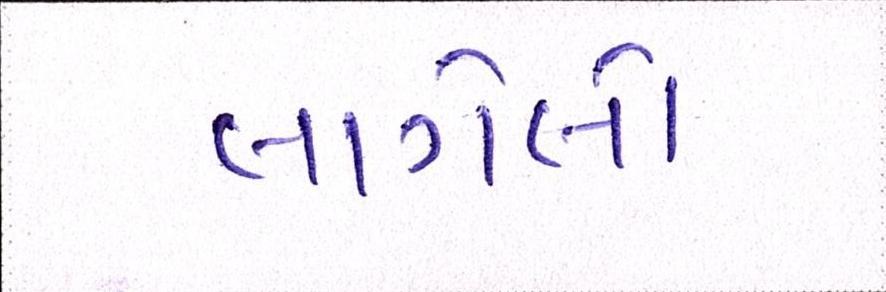 લાગેલો